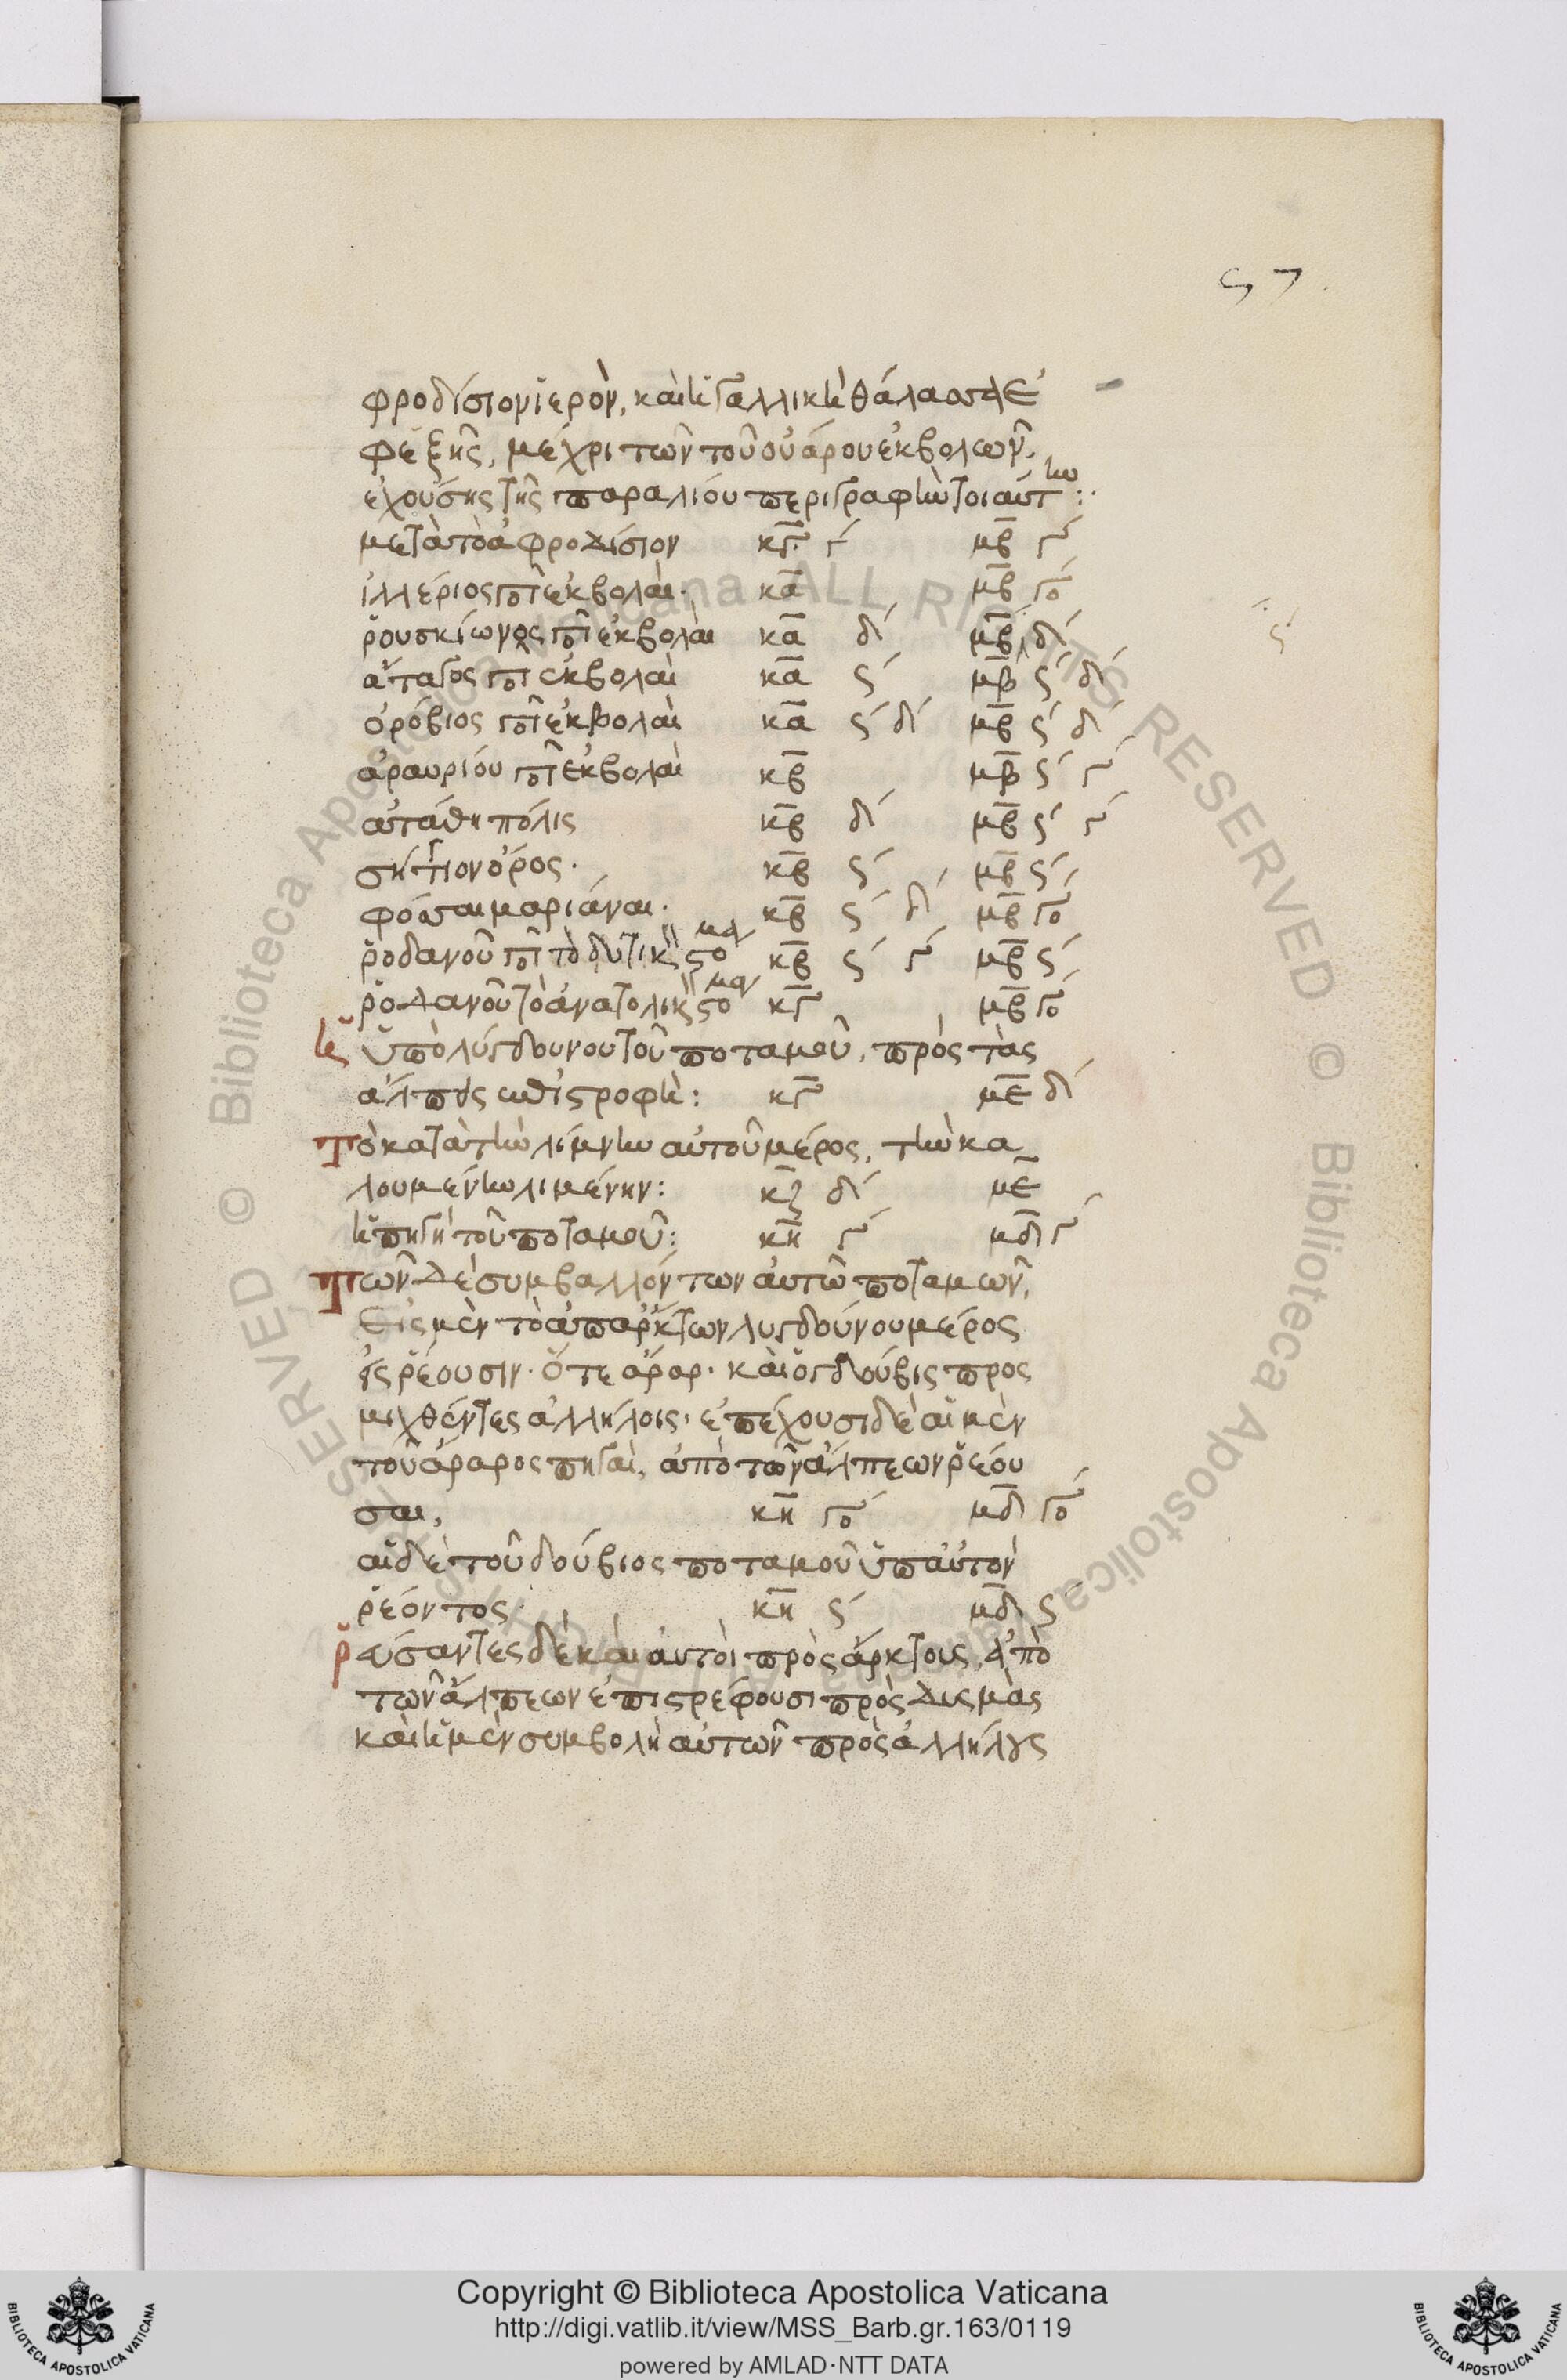 57
φροδίσιον ἱερὸν, καὶ ἡ γαλλικὴ θάλασσα ἐ
φεξῆς, μέχρι τῶν τοῦ οὐάρου ἐκβολῶν,
ἐχούσης τῆς παραλίου περιγραφὴν τοιαύτην:
μετὰ τὸ ἀφροδίσιον κγ γ μβ γ
ἰλλέριος ποτ ἐκβολαὶ. κα μβ γο
ῥουσκίωνος ποτ ἐκβολαὶ κα δ μβ δ
ἄταγος ποτ ἐκβολαὶ κα ϛ μβ ϛ δ
ὀρόβιος ποτ ἐκβολαὶ κα ϛ δ μβ ϛ δ
ἀραυρίου ποτ ἐκβολαὶ κβ μβ ϛ γ
ἀγάθη πόλις κβ δ μβ ϛ γ
σήτιον ὄρος. κβ ϛ μβ ϛ
φόσσαι μαριάναι. κβ ϛ δ μβ γο
ῥοδανοῦ ποτ τὸ δυτικ στομα κβ ϛ γ μβ ϛ
ῥοδανοῦ τὸ ἀνατολικ στομα κγ μβ γο
ἡ ὑπὸ λύγδουνον τοῦ ποταμοῦ, πρὸς τὰς
ἄλπεις ἐπιστροφὴ: κγ με δ
τὸ κατὰ τὴν λίμνην αὐτοῦ μέρος, τὴν κα
λουμένην λιμένην: κζ δ με
ἡ πηγὴ τοῦ ποταμοῦ: κη γ μδ γ
τῶν δὲ συμβαλλόντων αὐτῶ ποταμῶν,
εἰς μὲν τὸ ἀπάρκτων λυγδούνου μέρος
εἰσρέουσιν. ὅ τε ἄραρ. καὶ ὁ γδούβις προς
μιχθέντες ἀλλήλοις. ἐπέχουσι δὲ αἱ μὲν
τοῦ ἄραρος πηγαὶ, ἀπὸ τῶν ἄλπεων ῥέου
σαι, κη γο μδ γο
αἱ δὲ τοῦ δούβιος ποταμοῦ ὑπ αὐτὸν
ῥέοντος κη ϛ μδ ϛ
ῥεύσαντες δὲ καὶ αὐτοὶ πρὸς ἄρκτους, ἀπὸ
τῶν ἄλπεων ἐπιστρέφουσι πρὸς δυσμὰς
καὶ ἡ μὲν συμβολὴ αὐτῶν πρὸς ἀλλήλους
Copyright © Biblioteca Apostolica Vaticana
http://digi.vatlib.it/view/MSS_Barb.gr.163/0119
powered by AMLAD·NTT DATA
BIBLIOTECA APOSTOLICA VATICANA
BIBLIOTECA APOSTOLICA VATICANA